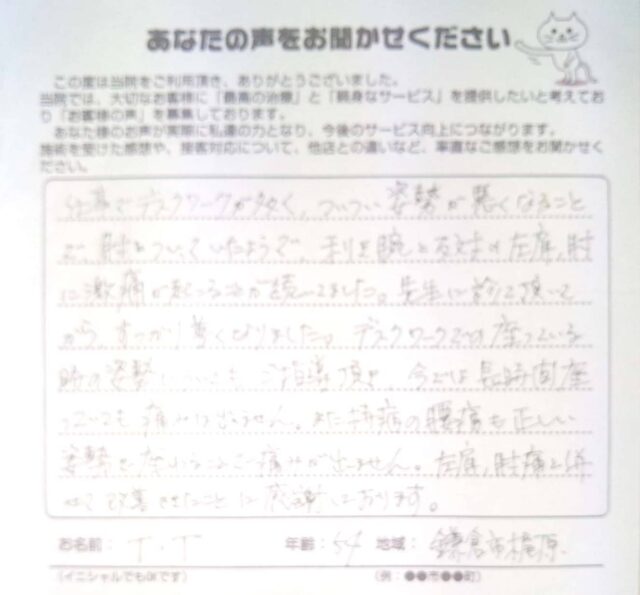 あなたの声をお聞かせください
この度は当院をご利用頂き、ありがとうございました。
当院では、大切なお客様に「最高の治療」と「親身なサービス」を提供したいと考えてお
り「お客様の声」を募集しております。
あなた様のお声が実際に私達の力となり、今後のサービス向上につながります。
施術を受けた感想や、接客対応について、他店との違いなど、率直なご感想をお聞かせく
ださい。
仕事でデスクワークが多く、ついつい姿勢が悪くなること
で、肘をついていたようで、利き腕と反対の左肩、肘
に激痛が起こることが続いてました。先生に診て頂いて
から、すっかり良くなりました。デスクワークでの座っている
時の姿勢についても、ご指導頂き、今では長時間座
っていても痛みは出ません。また持病の腰痛も正しい
姿勢で座ることで痛みが出ません。左肩、肘痛と併
せて改善させたことに感謝しております。
お名前: T.T 年齢: 54 地域: 鎌倉市梶原
(イニシャルでもOKです) (例:●●市●●町)